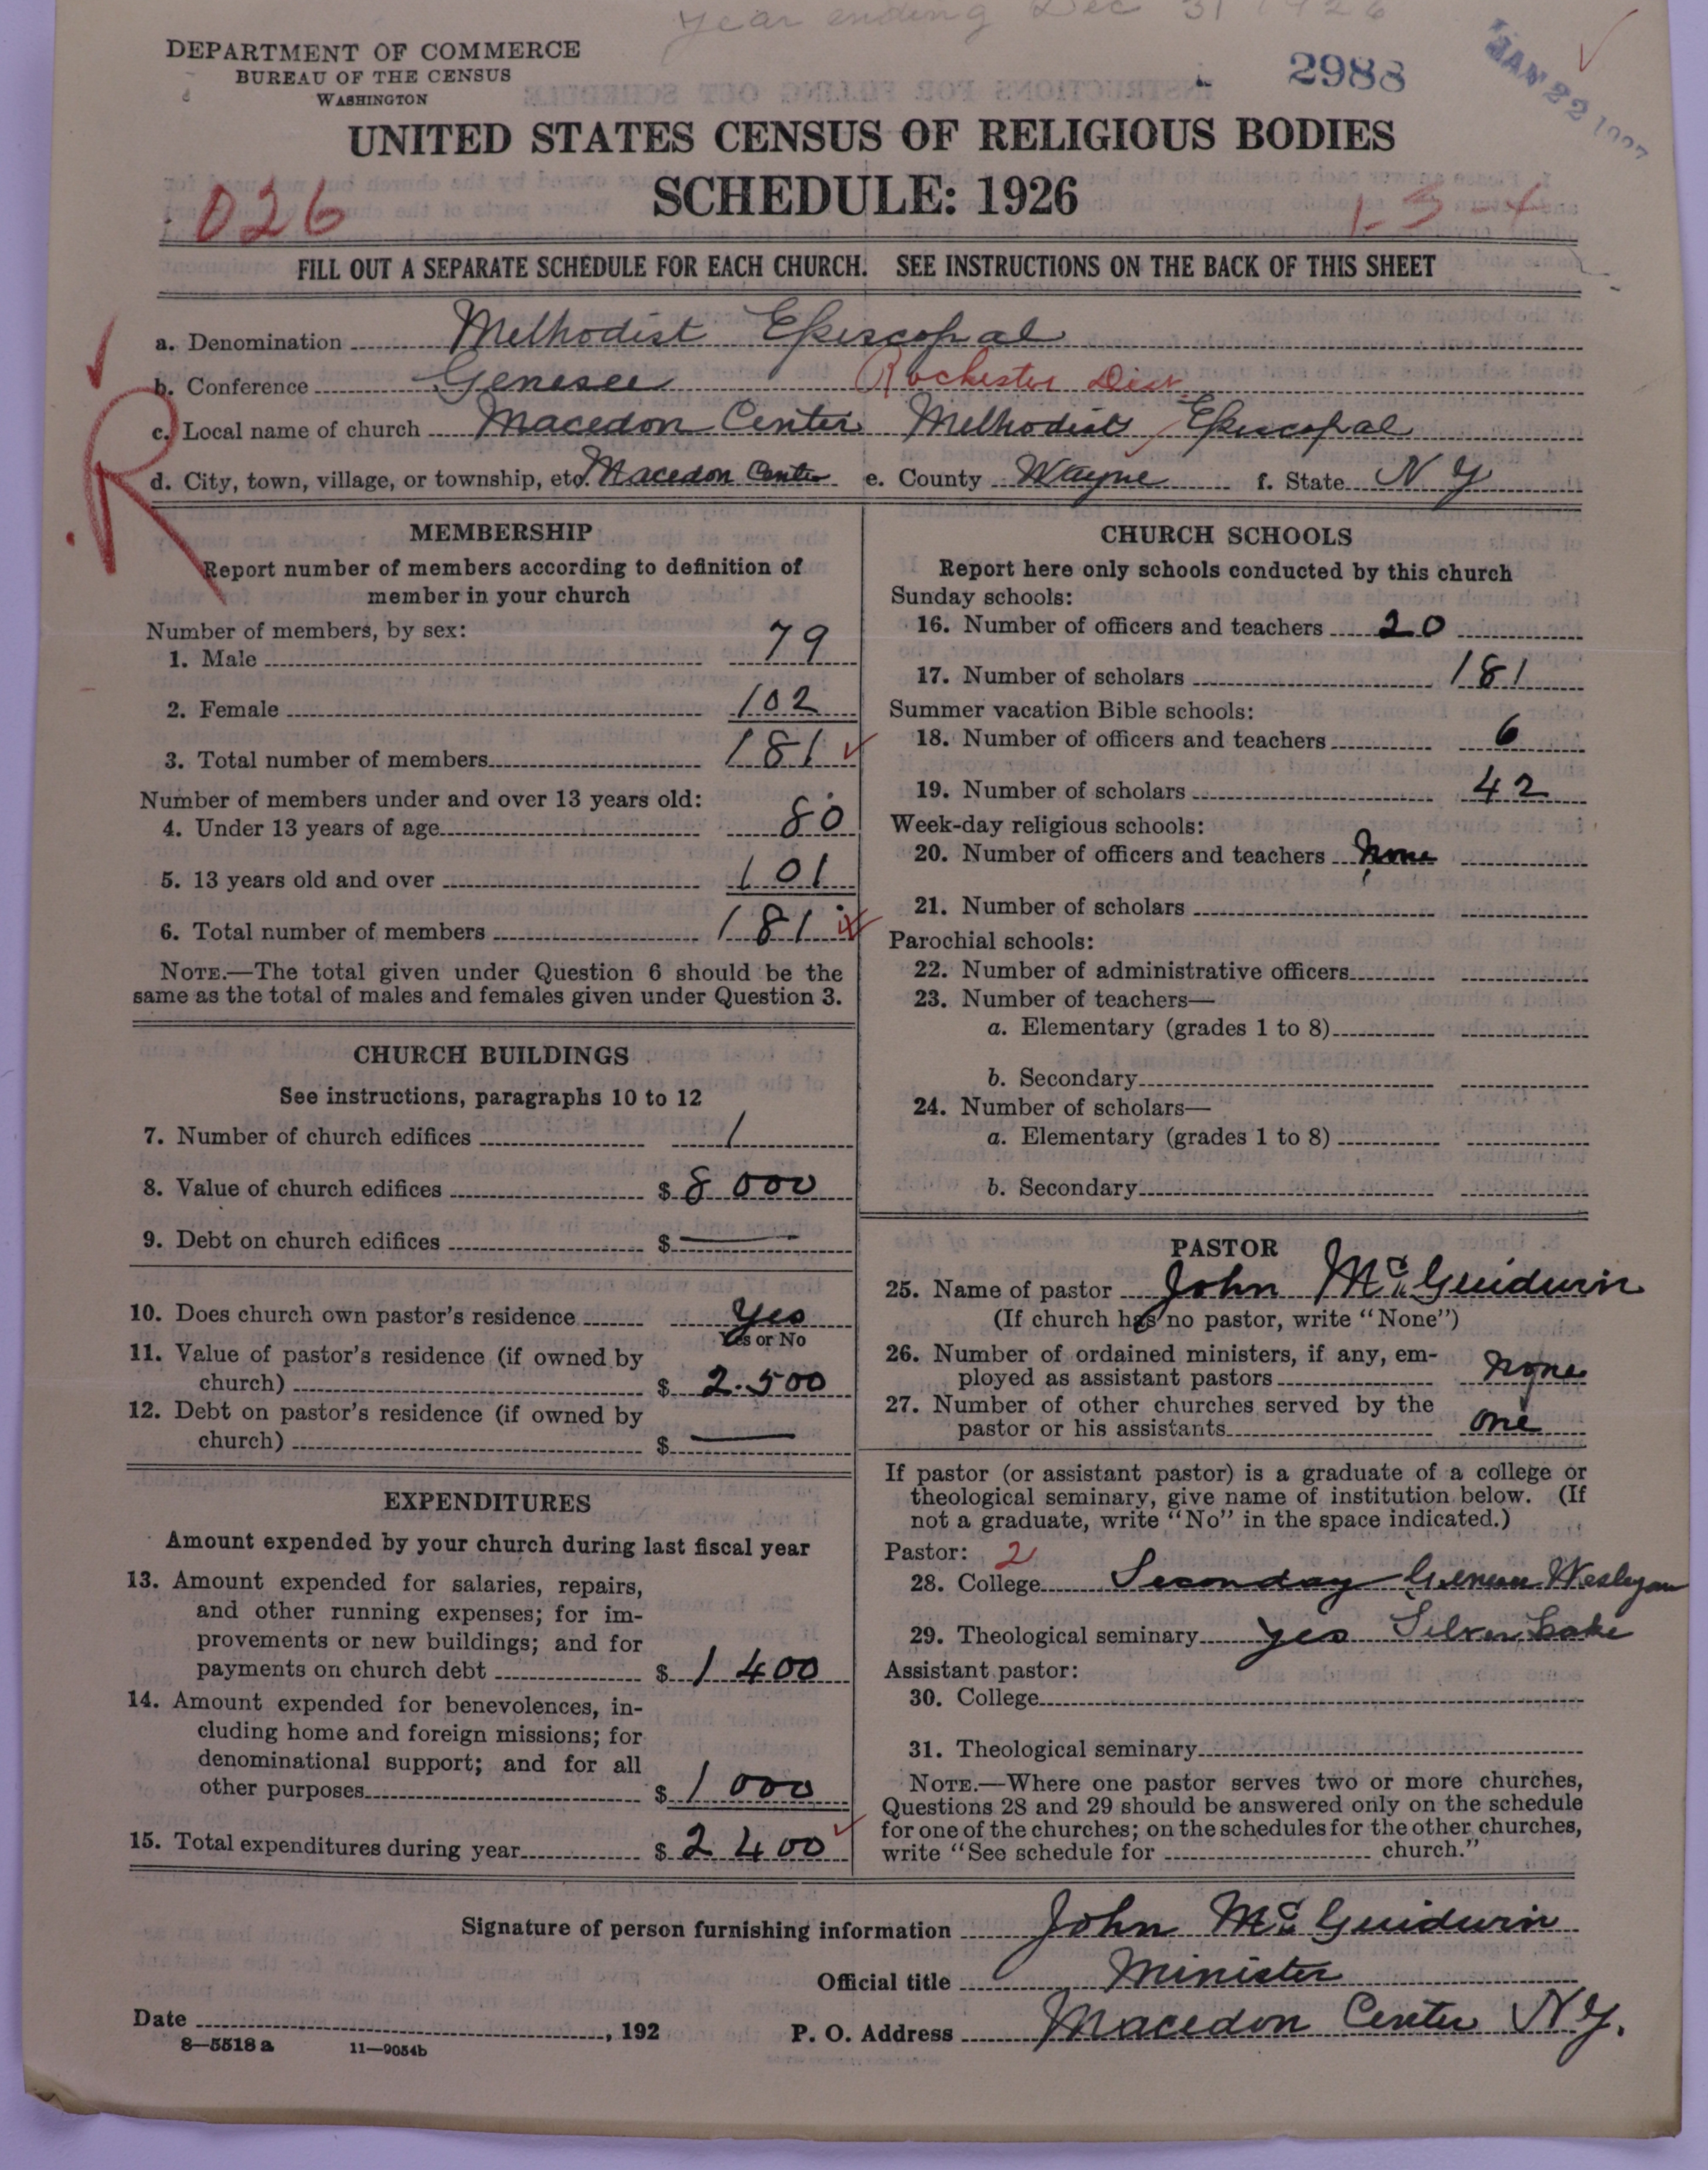 Year ending Dec 31 1926
DEPARTMENT OF COMMERCE
BUREAU OF THE CENSUS
WASHINGTON
2988
JAN 22 1927
UNITED STATES CENSUS OF RELIGIOUS BODIES
SCHEDULE: 1926
026
1-3-4
FILL OUT A SEPARATE SCHEDULE FOR EACH CHURCH. SEE INSTRUCTIONS ON THE BACK OF THIS SHEET
a. Denomination Methodist Episcopal
b. Conference Genesee Rochester Dist.
c. Local name of church Macedon Center Methodist Episcopal
R
d. City, town, village, or township, etc. Macedon Center e. County Wayne f. State N Y
MEMBERSHIP
Report number of members according to definition of
member in your church
Number of members, by sex:
1. Male 79
2. Female 102
3. Total number of members 181
Number of members under and over 13 years old:
4. Under 13 years of age 80
5. 13 years old and over 101
6. Total number of members 181
NOTE.—The total given under Question 6 should be the
same as the total of males and females given under Question 3.
CHURCH BUILDINGS
See instructions, paragraphs 10 to 12
7. Number of church edifices 1
8. Value of church edifices $ 8 000
9. Debt on church edifices $ —
10. Does church own pastor's residence Yes
Yes or No
11. Value of pastor's residence (if owned by
church) $ 2.500
12. Debt on pastor's residence (if owned by
church) $ —
EXPENDITURES
Amount expended by your church during last fiscal year
13. Amount expended for salaries, repairs,
and other running expenses; for im-
provements or new buildings; and for
payments on church debt $ 1 400
14. Amount expended for benevolences, in-
cluding home and foreign missions; for
denominational support; and for all
other purposes $ 1 000
15. Total expenditures during year $ 2 400
CHURCH SCHOOLS
Report here only schools conducted by this church
Sunday schools:
16. Number of officers and teachers 20
17. Number of scholars 181
Summer vacation Bible schools:
18. Number of officers and teachers 6
19. Number of scholars 42
Week-day religious schools:
20. Number of officers and teachers None
21. Number of scholars
Parochial schools:
22. Number of administrative officers
23. Number of teachers—
a. Elementary (grades 1 to 8)
b. Secondary
24. Number of scholars—
a. Elementary (grades 1 to 8)
b. Secondary
PASTOR
25. Name of pastor John Mc Guidwin
(If church has no pastor, write "None")
26. Number of ordained ministers, if any, em-
ployed as assistant pastors none
27. Number of other churches served by the
pastor or his assistants one
If pastor (or assistant pastor) is a graduate of a college or
theological seminary, give name of institution below. (If
not a graduate, write "No" in the space indicated.)
Pastor: 2
28. College Seconday Genesee Wesleyan
29. Theological seminary yes Silver Lake
Assistant pastor:
30. College
31. Theological seminary
NOTE.—Where one pastor serves two or more churches,
Questions 28 and 29 should be answered only on the schedule
for one of the churches; on the schedules for the other churches,
write "See schedule for church."
Signature of person furnishing information John Mc Guidwin
Official title Minister
Date , 192
P. O. Address Macedon Center N Y.
8—5518 a
11—9054b